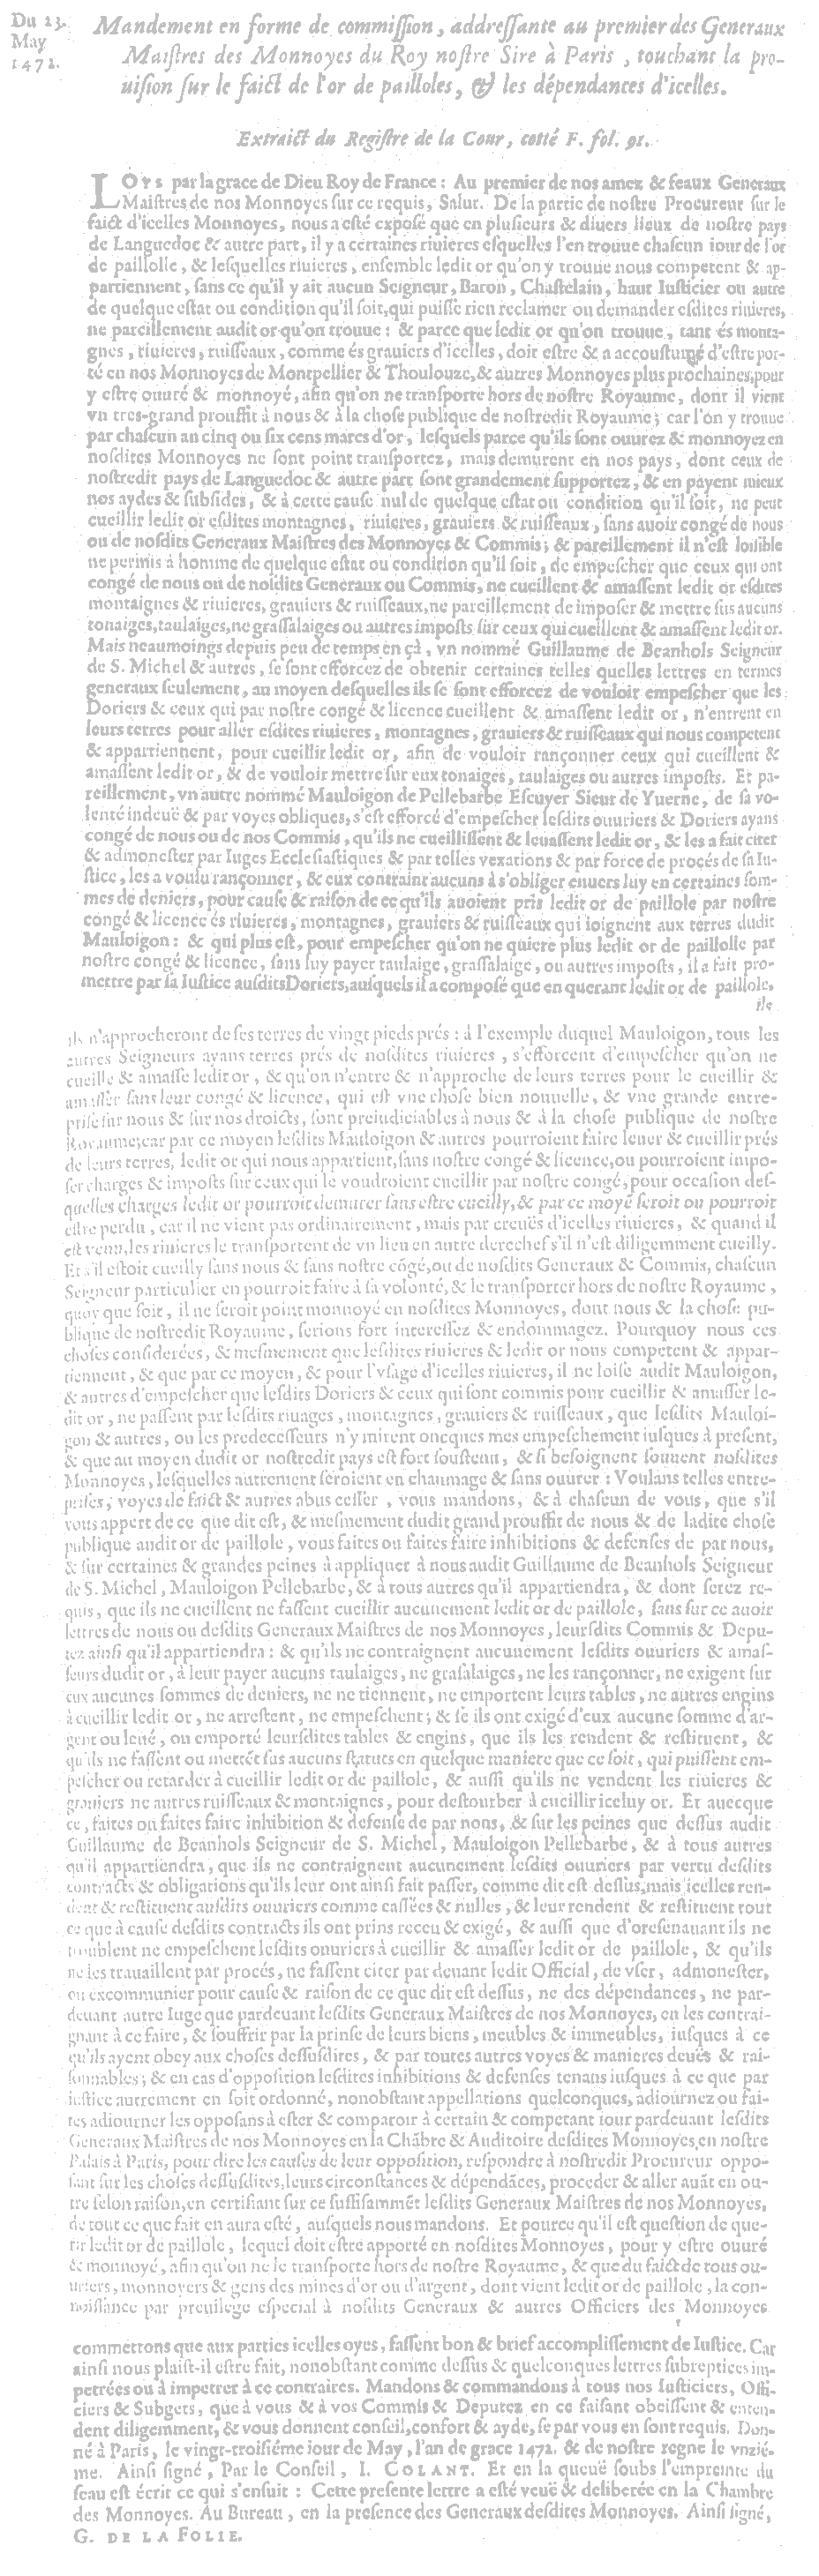 Du 23.
May
1472.
Mandement en forme de commission, addressante au premier des Generaux
Maistres des Monnoyes du Roy nostre Sire à Paris, touchant la pro-
uision sur le faict de l'or de pailloles, & les dépendances d'icelles.
Extraict du Registre de la Cour, cotté F. fol. 91.
LOYS par la grace de Dieu Roy de France : Au premier de nos amez & feaux Generaux
Maistres de nos Monnoyes sur ce requis, Salut. De la partie de nostre Procureur sur le
faict d'icelles Monnoyes, nous a esté exposé que en plusieurs & diuers lieux de nostre pays
de Languedoc & autre part, il y a certaines riuieres esquelles l'en trouue chascun iour de l'or
de paillolle, & lesquelles riuieres, ensemble ledit or qu'on y trouue nous competent & ap-
partiennent, sans ce qu'il y ait aucun Seigneur, Baron, Chastelain, haut Iusticier ou autre
de quelque estat ou condition qu'il soit, qui puisse rien reclamer ou demander esdites riuieres,
ne pareillement audit or qu'on trouue : & parce que ledit or qu'on trouue, tant és monta-
gnes, riuieres, ruisseaux, comme és grauiers d'icelles, doit estre & a accoustumé d'estre por-
té en nos Monnoyes de Montpellier & Thoulouze, & autres Monnoyes plus prochaines, pour
y estre ouuré & monnoyé, afin qu'on ne transporte hors de nostre Royaume, dont il vient
vn tres-grand prouffit à nous & à la chose publique de nostredit Royaume; car l'on y trouue
par chascun an cinq ou six cens marcs d'or, lesquels parce qu'ils sont ouurez & monnoyez en
nosdites Monnoyes ne sont point transportez, mais demurent en nos pays, dont ceux de
nostredit pays de Languedoc & autre part sont grandement supportez, & en payent mieux
nos aydes & subsides, & à cette cause nul de quelque estat ou condition qu'il soit, ne peut
cueillir ledit or esdites montagnes, riuieres, grauiers & ruisseaux, sans auoir congé de nous
ou de nosdits Generaux Maistres des Monnoyes & Commis; & pareillement il n'est loisible
ne permis à homme de quelque estat ou condition qu'il soit, de empescher que ceux qui ont
congé de nous ou de nosdits Generaux ou Commis, ne cueillent & amassent ledit or esdites
montaignes & riuieres, grauiers & ruisseaux, ne pareillement de imposer & mettre sus aucuns
tonaiges, taulaiges, ne grassalaiges ou autres imposts sur ceux qui cueillent & amassent ledit or.
Mais neaumoings depuis peu de temps en çà, vn nommé Guillaume de Beanhols Seigneur
de S. Michel & autres, se sont efforcez de obtenir certaines telles quelles lettres en termes
generaux seulement, au moyen desquelles ils se sont efforcez de vouloir empescher que les
Doriers & ceux qui par nostre congé & licence cueillent & amassent ledit or, n'entrent en
leurs terres pour aller esdites riuieres, montagnes, grauiers & ruisseaux qui nous competent
& appartiennent, pour cueillir ledit or, afin de vouloir rançonner ceux qui cueillent &
amassent ledit or, & de vouloir mettre sur eux tonaiges, taulaiges ou autres imposts. Et pa-
reillement, vn autre nommé Mauloigon de Pellebarbe Escuyer Sieur de Yuerne, de sa vo-
lenté indeuë & par voyes obliques, s'est efforcé d'empescher lesdits ouuriers & Doriers ayans
congé de nous ou de nos Commis, qu'ils ne cueillissent & leuassent ledit or, & les a fait citer
& admonester par Iuges Ecclesiastiques & par telles vexations & par force de procés de sa Iu-
stice, les a voulu rançonner, & eux contraint aucuns à s'obliger enuers luy en certaines som-
mes de deniers, pour cause & raison de ce qu'ils auoient pris ledit or de paillole par nostre
congé & licence és riuieres, montagnes, grauiers & ruisseaux qui ioignent aux terres dudit
Mauloigon : & qui plus est, pour empescher qu'on ne quiere plus ledit or de paillolle par
nostre congé & licence, sans luy payer taulaige, grassalaige, ou autres imposts, il a fait pro-
mettre par sa Iustice ausdits Doriers, ausquels il a composé que en querant ledit or de paillole,
ils
ils n'approcheront de ses terres de vingt pieds prés : à l'exemple duquel Mauloigon, tous les
autres Seigneurs ayans terres prés de nosdites riuieres, s'efforcent d'empescher qu'on ne
cueille & amasse ledit or, & qu'on n'entre & n'approche de leurs terres pour le cueillir &
amasser sans leur congé & licence, qui est vne chose bien nouuelle, & vne grande entre-
prise sur nous & sur nos droicts, sont preiudiciables à nous & à la chose publique de nostre
Royaume, car par ce moyen lesdits Mauloigon & autres pourroient faire leuer & cueillir prés
de leurs terres, ledit or qui nous appartient, sans nostre congé & licence, ou pourroient impo-
ser charges & imposts sur ceux qui le voudroient cueillir par nostre congé, pour occasion des-
quelles charges ledit or pourroit demurer sans estre cueilly, & par ce moyē seroit ou pourroit
estre perdu, car il ne vient pas ordinairement, mais par creuës d'icelles riuieres, & quand il
est venu, les riuieres le transportent de vn lieu en autre derechef s'il n'est diligemment cueilly.
Et s'il estoit cueilly sans nous & sans nostre cōgé, ou de nosdits Generaux & Commis, chascun
Seigneur particulier en pourroit faire à sa volonté, & le transporter hors de nostre Royaume,
quoy que soit, il ne seroit point monnoyé en nosdites Monnoyes, dont nous & la chose pu-
blique de nostredit Royaume, serions fort interessez & endommagez. Pourquoy nous ces
choses considerées, & mesmement que lesdites riuieres & ledit or nous competent & appar-
tiennent, & que par ce moyen, & pour l'vsage d'icelles riuieres, il ne loise audit Mauloigon,
& autres d'empescher que lesdits Doriers & ceux qui sont commis pour cueillir & amasser le-
dit or, ne passent par lesdits riuages, montagnes, grauiers & ruisseaux, que lesdits Mauloi-
gon & autres, ou les predecesseurs n'y mirent oncques mes empeschement iusques à present,
& que au moyen dudit or nostredit pays est fort soustenu, & si besoignent souuent nosdites
Monnoyes, lesquelles autrement seroient en chaumage & sans ouurer : Voulans telles entre-
prises, voyes de faict & autres abus cesser, vous mandons, & à chascun de vous, que s'il
vous appert de ce que dit est, & mesmement dudit grand prouffit de nous & de ladite chose
publique audit or de paillole, vous faites ou faites faire inhibitions & defenses de par nous,
& sur certaines & grandes peines à appliquer à nous audit Guillaume de Beanhols Seigneur
de S. Michel, Mauloigon Pellebarbe, & à tous autres qu'il appartiendra, & dont serez re-
quis, que ils ne cueillent ne fassent cueillir aucunement ledit or de paillole, sans sur ce auoir
lettres de nous ou desdits Generaux Maistres de nos Monnoyes, leursdits Commis & Depu-
tez ainsi qu'il appartiendra : & qu'ils ne contraignent aucunement lesdits ouuriers & amas-
seurs dudit or, à leur payer aucuns taulaiges, ne grasalaiges, ne les rançonner, ne exigent sur
eux aucunes sommes de deniers, ne ne tiennent, ne emportent leurs tables, ne autres engins
à cueillir ledit or, ne arrestent, ne empeschent; & se ils ont exigé d'eux aucune somme d'ar-
gent ou leué, ou emporté leursdites tables & engins, que ils les rendent & restituent, &
qu'ils ne fassent ou mettēt sus aucuns statuts en quelque maniere que ce soit, qui puissent em-
pescher ou retarder à cueillir ledit or de paillole, & aussi qu'ils ne vendent les riuieres &
grauiers ne autres ruisseaux & montaignes, pour destourber à cueillir iceluy or. Et auecque
ce, faites ou faites faire inhibition & defense de par nous, & sur les peines que dessus audit
Guillaume de Beanhols Seigneur de S. Michel, Mauloigon Pellebarbe, & à tous autres
qu'il appartiendra, que ils ne contraignent aucunement lesdits ouuriers par vertu desdits
contracts & obligations qu'ils leur ont ainsi fait passer, comme dit est dessus, mais icelles ren-
dent & restituent ausdits ouuriers comme cassées & nulles, & leur rendent & restituent tout
ce que à cause desdits contracts ils ont prins receu & exigé, & aussi que d'oresenauant ils ne
troublent ne empeschent lesdits ouuriers à cueillir & amasser ledit or de paillole, & qu'ils
ne les trauaillent par procés, ne fassent citer par deuant ledit Official, de vser, admonester,
ou excommunier pour cause & raison de ce que dit est dessus, ne des dépendances, ne par-
deuant autre Iuge que pardeuant lesdits Generaux Maistres de nos Monnoyes, en les contrai-
gnant à ce faire, & souffrir par la prinse de leurs biens, meubles & immeubles, iusques à ce
qu'ils ayent obey aux choses dessusdites, & par toutes autres voyes & manieres deuës & rai-
sonnables; & en cas d'opposition lesdites inhibitions & defenses tenans iusques à ce que par
iustice autrement en soit ordonné, nonobstant appellations quelconques, adiournez ou fai-
tes adiourner les opposans à ester & comparoir à certain & competant iour pardeuant lesdits
Generaux Maistres de nos Monnoyes en la Chābre & Auditoire desdites Monnoyes, en nostre
Palais à Paris, pour dire les causes de leur opposition, respondre à nostredit Procureur oppo-
sant sur les choses dessusdites, leurs circonstances & dépendāces, proceder & aller auāt en ou-
tre selon raison, en certifiant sur ce suffisammēt lesdits Generaux Maistres de nos Monnoyes,
de tout ce que fait en aura esté, ausquels nous mandons. Et pource qu'il est question de que-
rir ledit or de paillole, lequel doit estre apporté en nosdites Monnoyes, pour y estre ouuré
& monnoyé, afin qu'on ne le transporte hors de nostre Royaume, & que du faict de tous ou-
uriers, monnoyers & gens des mines d'or ou d'argent, dont vient ledit or de paillole, la con-
noissance par preuilege especial à nosdits Generaux & autres Officiers des Monnoyes
commettons que aux parties icelles oyes, fassent bon & brief accomplissement de Iustice. Car
ainsi nous plaist-il estre fait, nonobstant comme dessus & quelconques lettres subreptices im-
petrées ou à impetrer à ce contraires. Mandons & commandons à tous nos Iusticiers, Offi-
ciers & Subgets, que à vous & à vos Commis & Deputez en ce faisant obeissent & enten-
dent diligemment, & vous donnent conseil, confort & ayde, se par vous en sont requis. Don-
né à Paris, le vingt-troisiéme iour de May, l'an de grace 1472. & de nostre regne le vnzié-
me. Ainsi signé, Par le Conseil, I. COLANT. Et en la queuë soubs l'empreinte du
seau est écrit ce qui s'ensuit : Cette presente lettre a esté veuë & deliberée en la Chambre
des Monnoyes. Au Bureau, en la presence des Generaux desdites Monnoyes. Ainsi signé,
G. DE LA FOLIE.